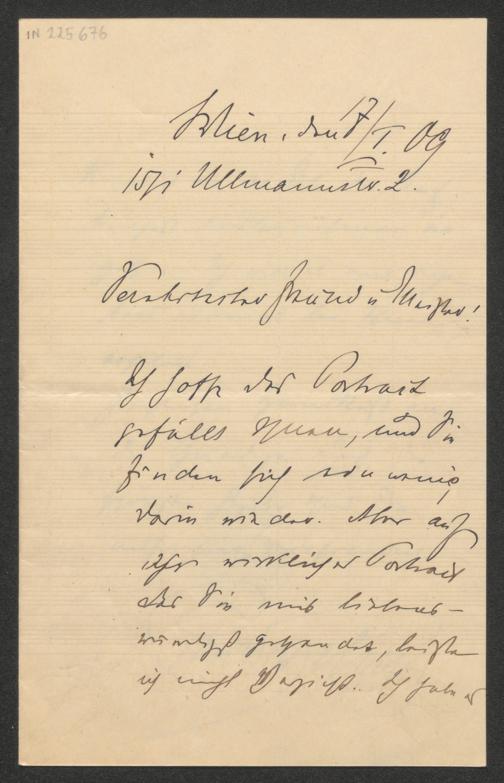 IN 225676
Wien, den 17/I. 09
15/1 Ullmannstr. 2.
Verehrtester Freund u Meister!
Ich hoffe das Portrait
gefällt Ihnen, und Sie
finden sich ein wenig
darin wieder. Aber auf
Ihr wirkliches Portrait
das Sie mir liebens-
würdigst gesendet, leiste
ich nicht Verzicht. Ich habe es